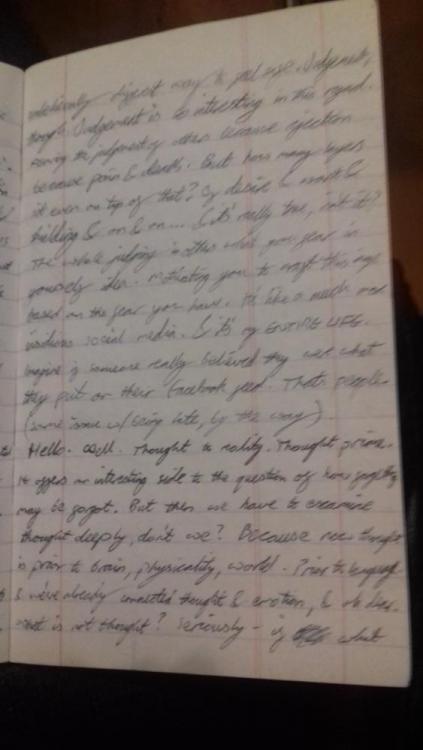 different way to feel use. Judgement,
though. Judgement is so interesting in this regard.
the judgement of others because rejection
because pain & death. But how many layers
it even on top of that? Of desire &
building & on & on... & it's really true, isn't it?
The whole judging in others what you fear in
yourself idea. Motivating you to craft this
based on the fear you have. It's like a much more
insidious social media. & it's my ENTIRE LIFE.
Imagine if someone really believed they were what
they put on their Facebook feed. That's people.
(same issue w/ being late, by the way).
Hello. Well. Thought to reality. Thought prime.
It offers an interesting side to the question of how
may be forgot. But then we have to examine
thought deeply, don't we? Because now thought
is prior to brain, physicality, world. Prior to language
& we've already connected thought & emotion, &
what is not thought? Seriously - if what